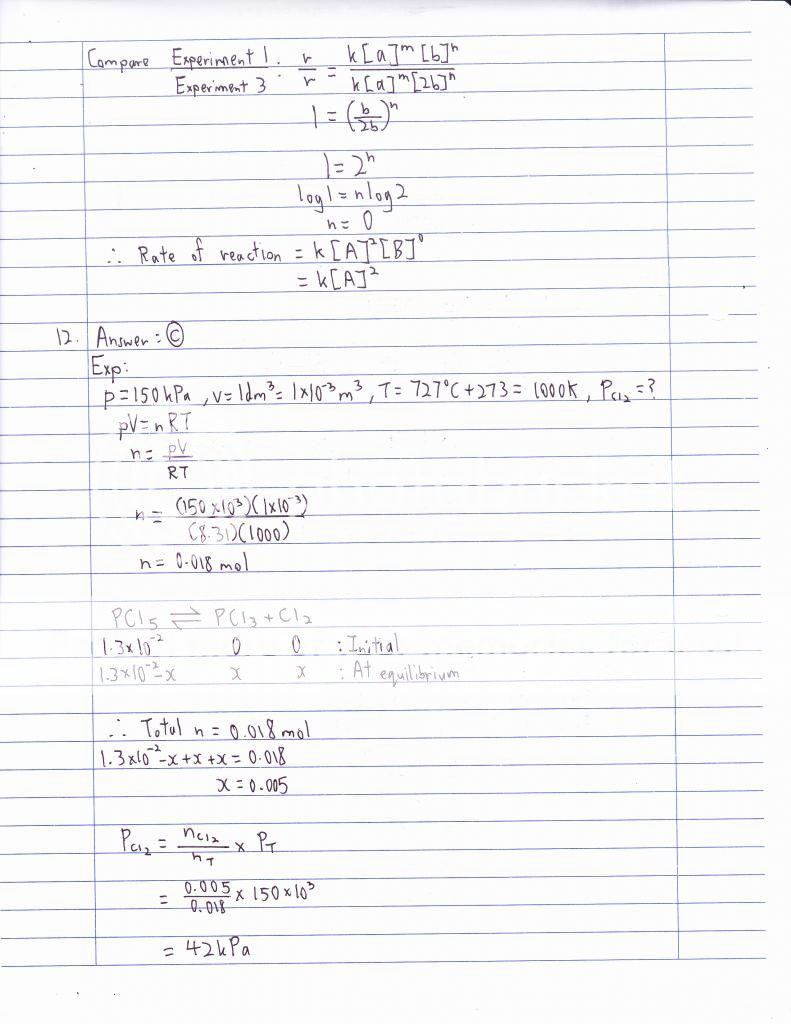 Compare Experiment 1 : r/r = k[a]^m [b]^n / k[a]^m [2b]^n
Experiment 3
1 = (b/2b)^n
1 = 2^n
log1 = nlog2
n = 0
∴ Rate of reaction = k[A]²[B]⁰
= k[A]²
12. Answer : Ⓒ
Exp:
p = 150 kPa , v = 1dm³ = 1×10⁻³ m³ , T = 727°C + 273 = 1000K , P_Cl₂ = ?
pV = nRT
n = pV/RT
n = (150×10³)(1×10⁻³) / (8.31)(1000)
n = 0.018 mol
PCl₅ ⇌ PCl₃ + Cl₂
1.3×10⁻² 0 0 : Initial
1.3×10⁻²-x x x : At equilibrium
∴ Total n = 0.018 mol
1.3×10⁻²-x+x+x = 0.018
x = 0.005
P_Cl₂ = n_Cl₂/n_T × P_T
= 0.005/0.018 × 150×10³
= 42kPa